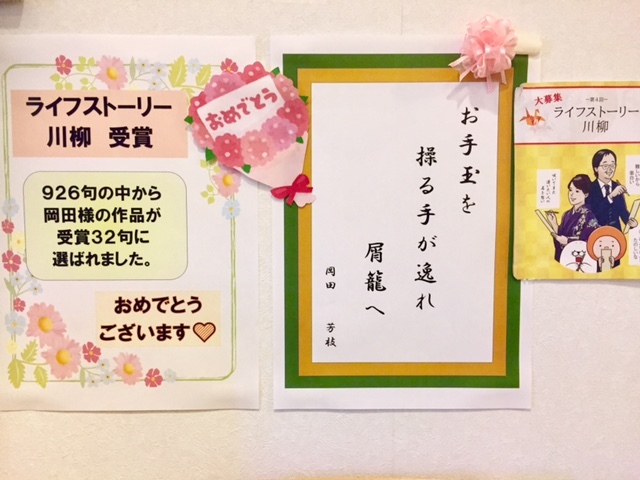 ライフストーリー
川柳 受賞
926句の中から
岡田様の作品が
受賞32句に
選ばれました。
おめでとう
ございます♡
おめでとう
お手玉を
操る手が逸れ
屑籠へ
岡田 芳枝
大募集
~第4回~
ライフストーリー
川柳